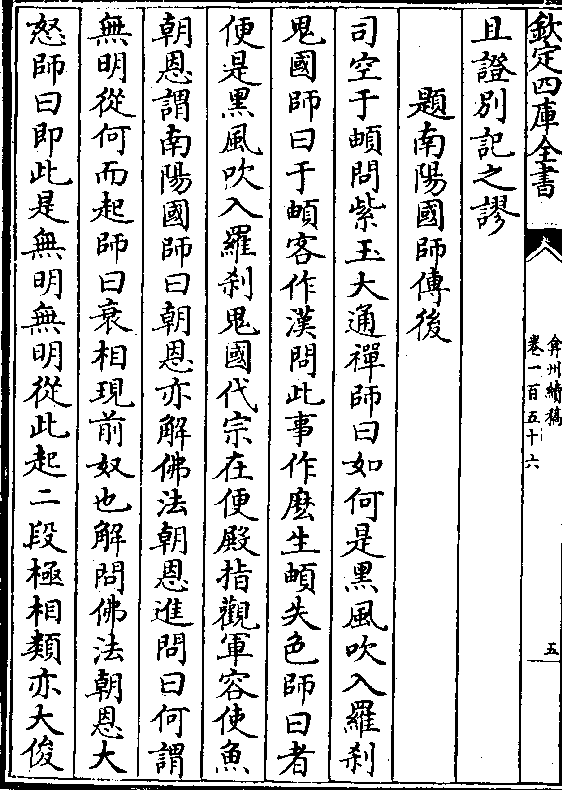 欽定四庫全書
弇州續稿
卷一百五十六
五
且證別記之謬
題南陽國師傳後
司空于頔問紫玉大通禪師曰如何是黑風吹入羅剎
鬼國師曰于頔客作漢問此事作麽生頔失色師曰者
便是黑風吹入羅剎鬼國代宗在便殿指觀軍容使魚
朝恩謂南陽國師曰朝恩亦解佛法朝恩進問曰何謂
無明從何而起師曰衰相現前奴也解問佛法朝恩大
怒師曰即此是無明無明從此起二段極相類亦大俊